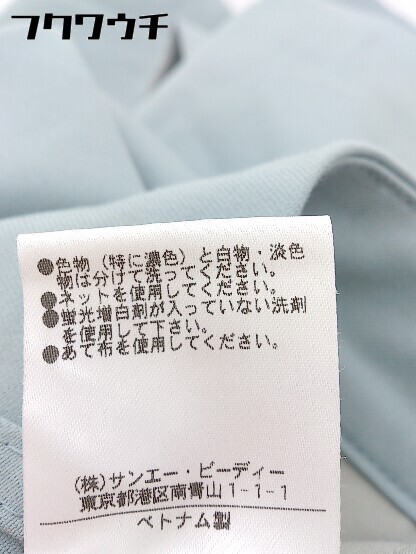 フクワウチ
●色物(特に濃色)と白物・淡色
物は分けて洗ってください。
●ネットを使用してください。
●蛍光増白剤が入っていない洗剤
を使用して下さい。
●あて布を使用してください。
(株)サンエー・ビーディー
東京都港区南青山1-1-1
ベトナム製